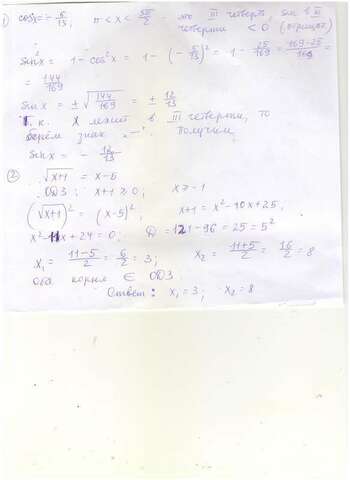 1) cosx = - 5/13; π < x < 3π/2 - это III четверть, sin в III четверти < 0 (отрицат)
sin²x = 1 - cos²x = 1 - (- 5/13)² = 1 - 25/169 = (169-25)/169 =
= 144/169
sin x = ± √(144/169) = ± 12/13
Т.к. x лежит в III четверти, то
берём знак "-". Получим,
sin x = - 12/13
2) √(x+1) = x-5
ОДЗ: x+1 ≥ 0; x ≥ -1
(√(x+1))² = (x-5)²; x+1 = x²-10x+25;
x²-11x+24 = 0; D = 121-96 = 25 = 5²
x₁ = (11-5)/2 = 6/2 = 3; x₂ = (11+5)/2 = 16/2 = 8
оба корня ∈ ОДЗ
Ответ: x₁ = 3; x₂ = 8